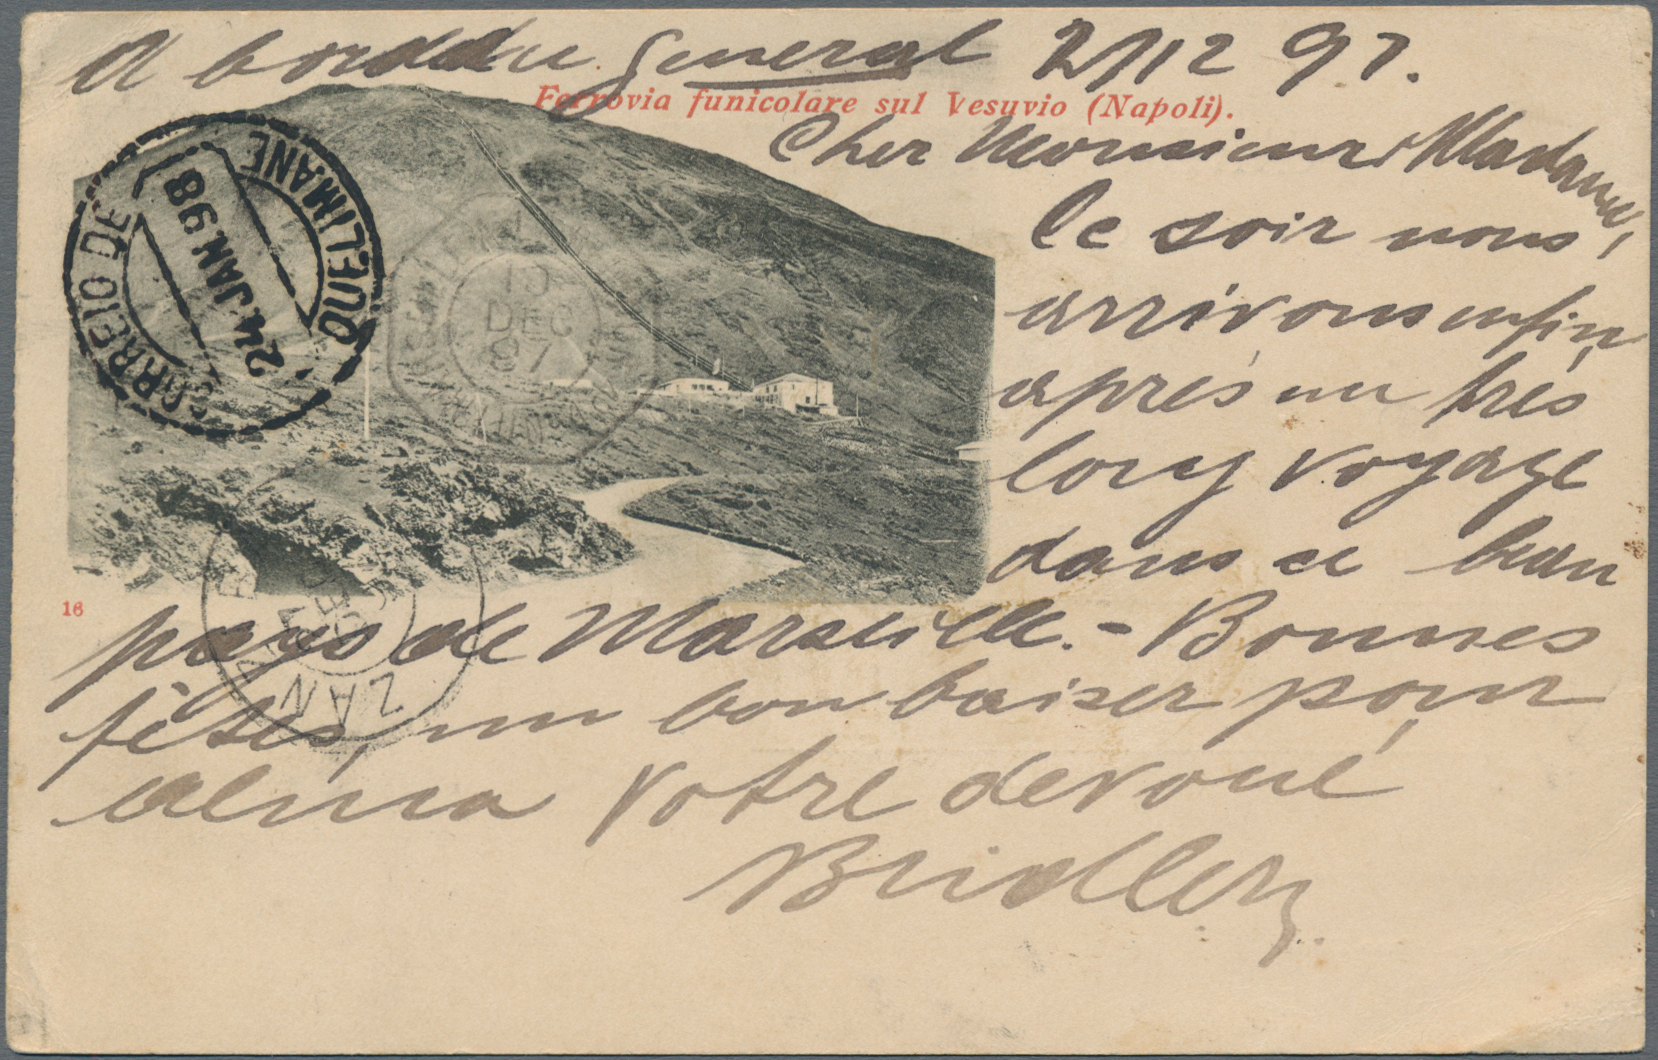 A bord du General 2/12 97.
Ferrovia funicolare sul Vesuvio (Napoli).
Cher Monsieur, Madame,
le soir nous
arrivons enfin
après un très
long voyage
dans ce beau
pays de Marseille. - Bonnes
fêtes, un bon baiser pour
alma Votre devoué
16
CORREIO DE QUELIMANE
24.JAN.98
DEC
97
ZAN